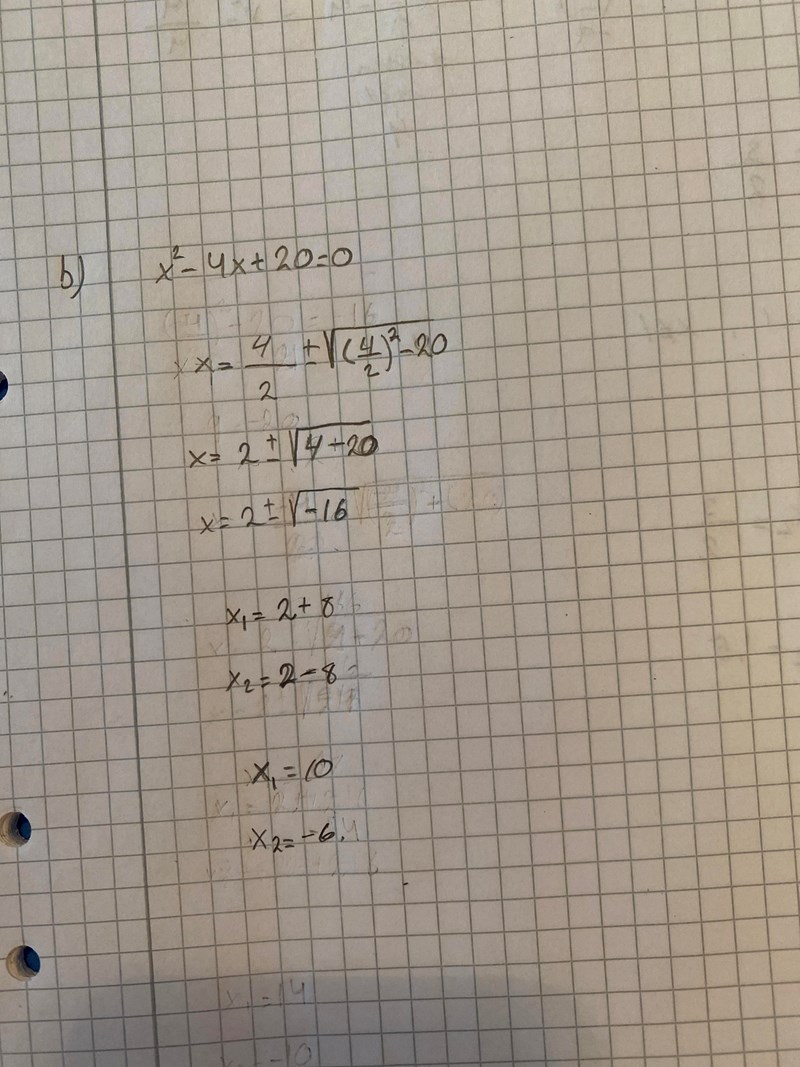 b) x² - 4x + 20 = 0
x = 4/2 ± √((4/2)² - 20)
x = 2 ± √(4 + 20)
x = 2 ± √(-16)
x₁ = 2 + 8
x₂ = 2 - 8
x₁ = 10
x₂ = -6
x₁ = 14
-10